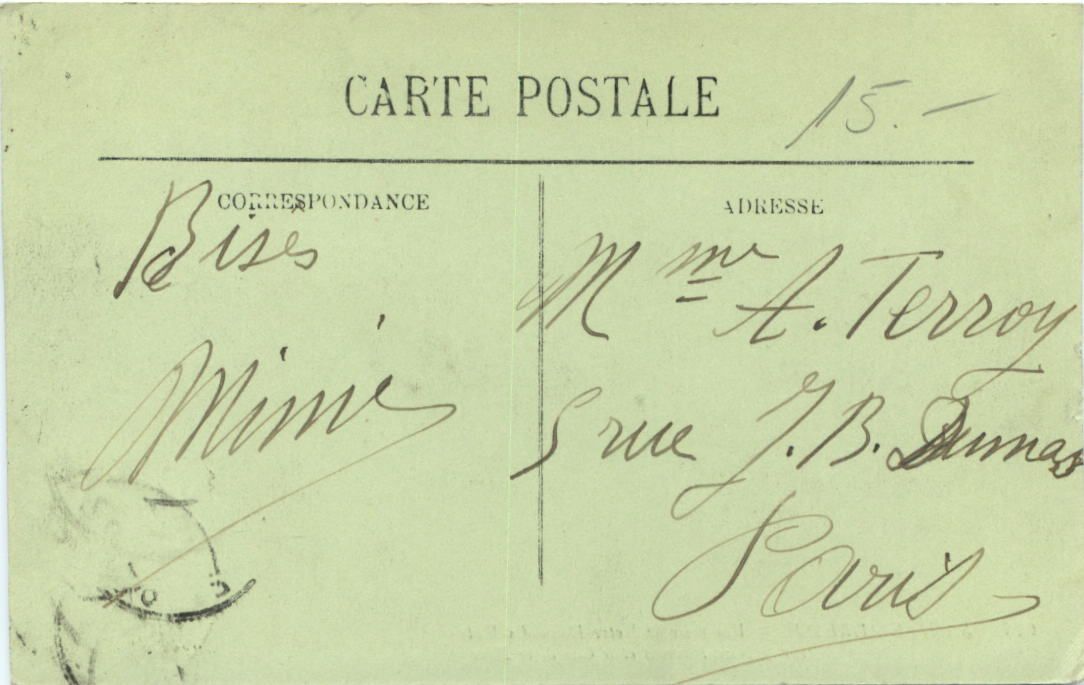 CARTE POSTALE
15.-
CORRESPONDANCE
Bises
Mimi
ADRESSE
Mme A. Terroy
5 rue J. B. Dumas
Paris